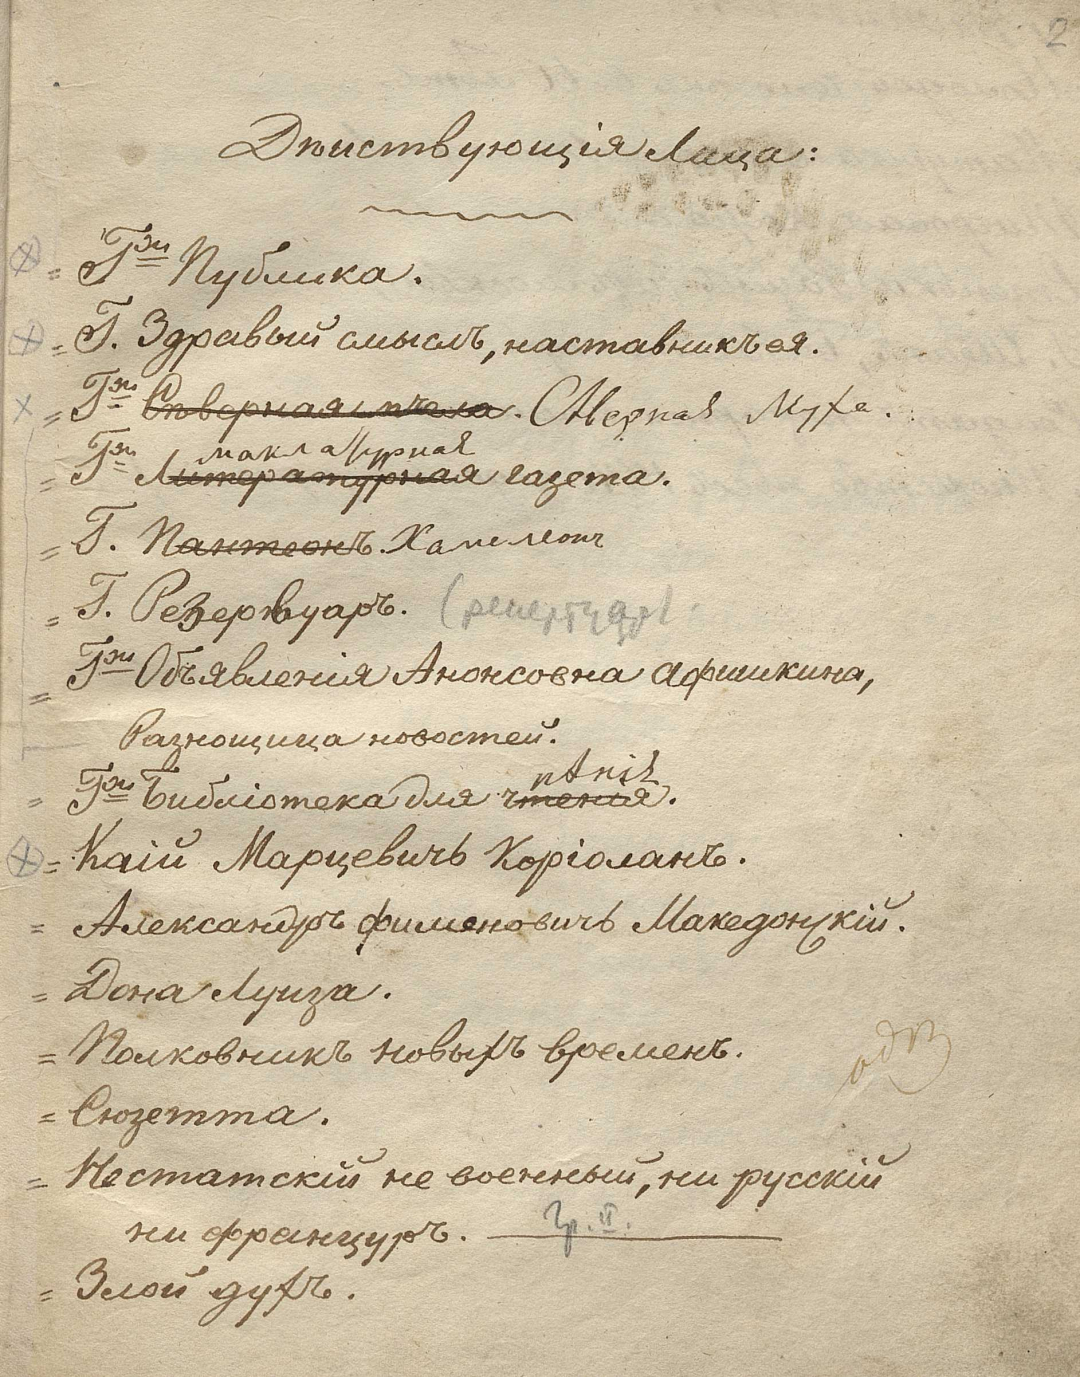 2
Дѣйствующія Лица:
Г-жа Публика.
Г. Здравый смыслъ, наставникъ ея.
Г-жа Сѣверная пчела. Сѣверная Муха.
макулатурная
Г-жа Литературная газета.
Г. Пантеонъ. Хамелеонъ
Г. Резервуаръ. (репертуаръ)
Г-жа Объявленія Анонсовна Афишкина,
Разнощица новостей.
пѣнія
Г-жа Библіотека для чтенія.
Каій Марцевичъ Коріоланъ.
Александръ Филиповичъ Македонскій.
Дона Луиза.
Полковникъ новыхъ временъ.
Сюзетта.
Нестатскій не военный, ни русскій
ни французъ.
Злой духъ.